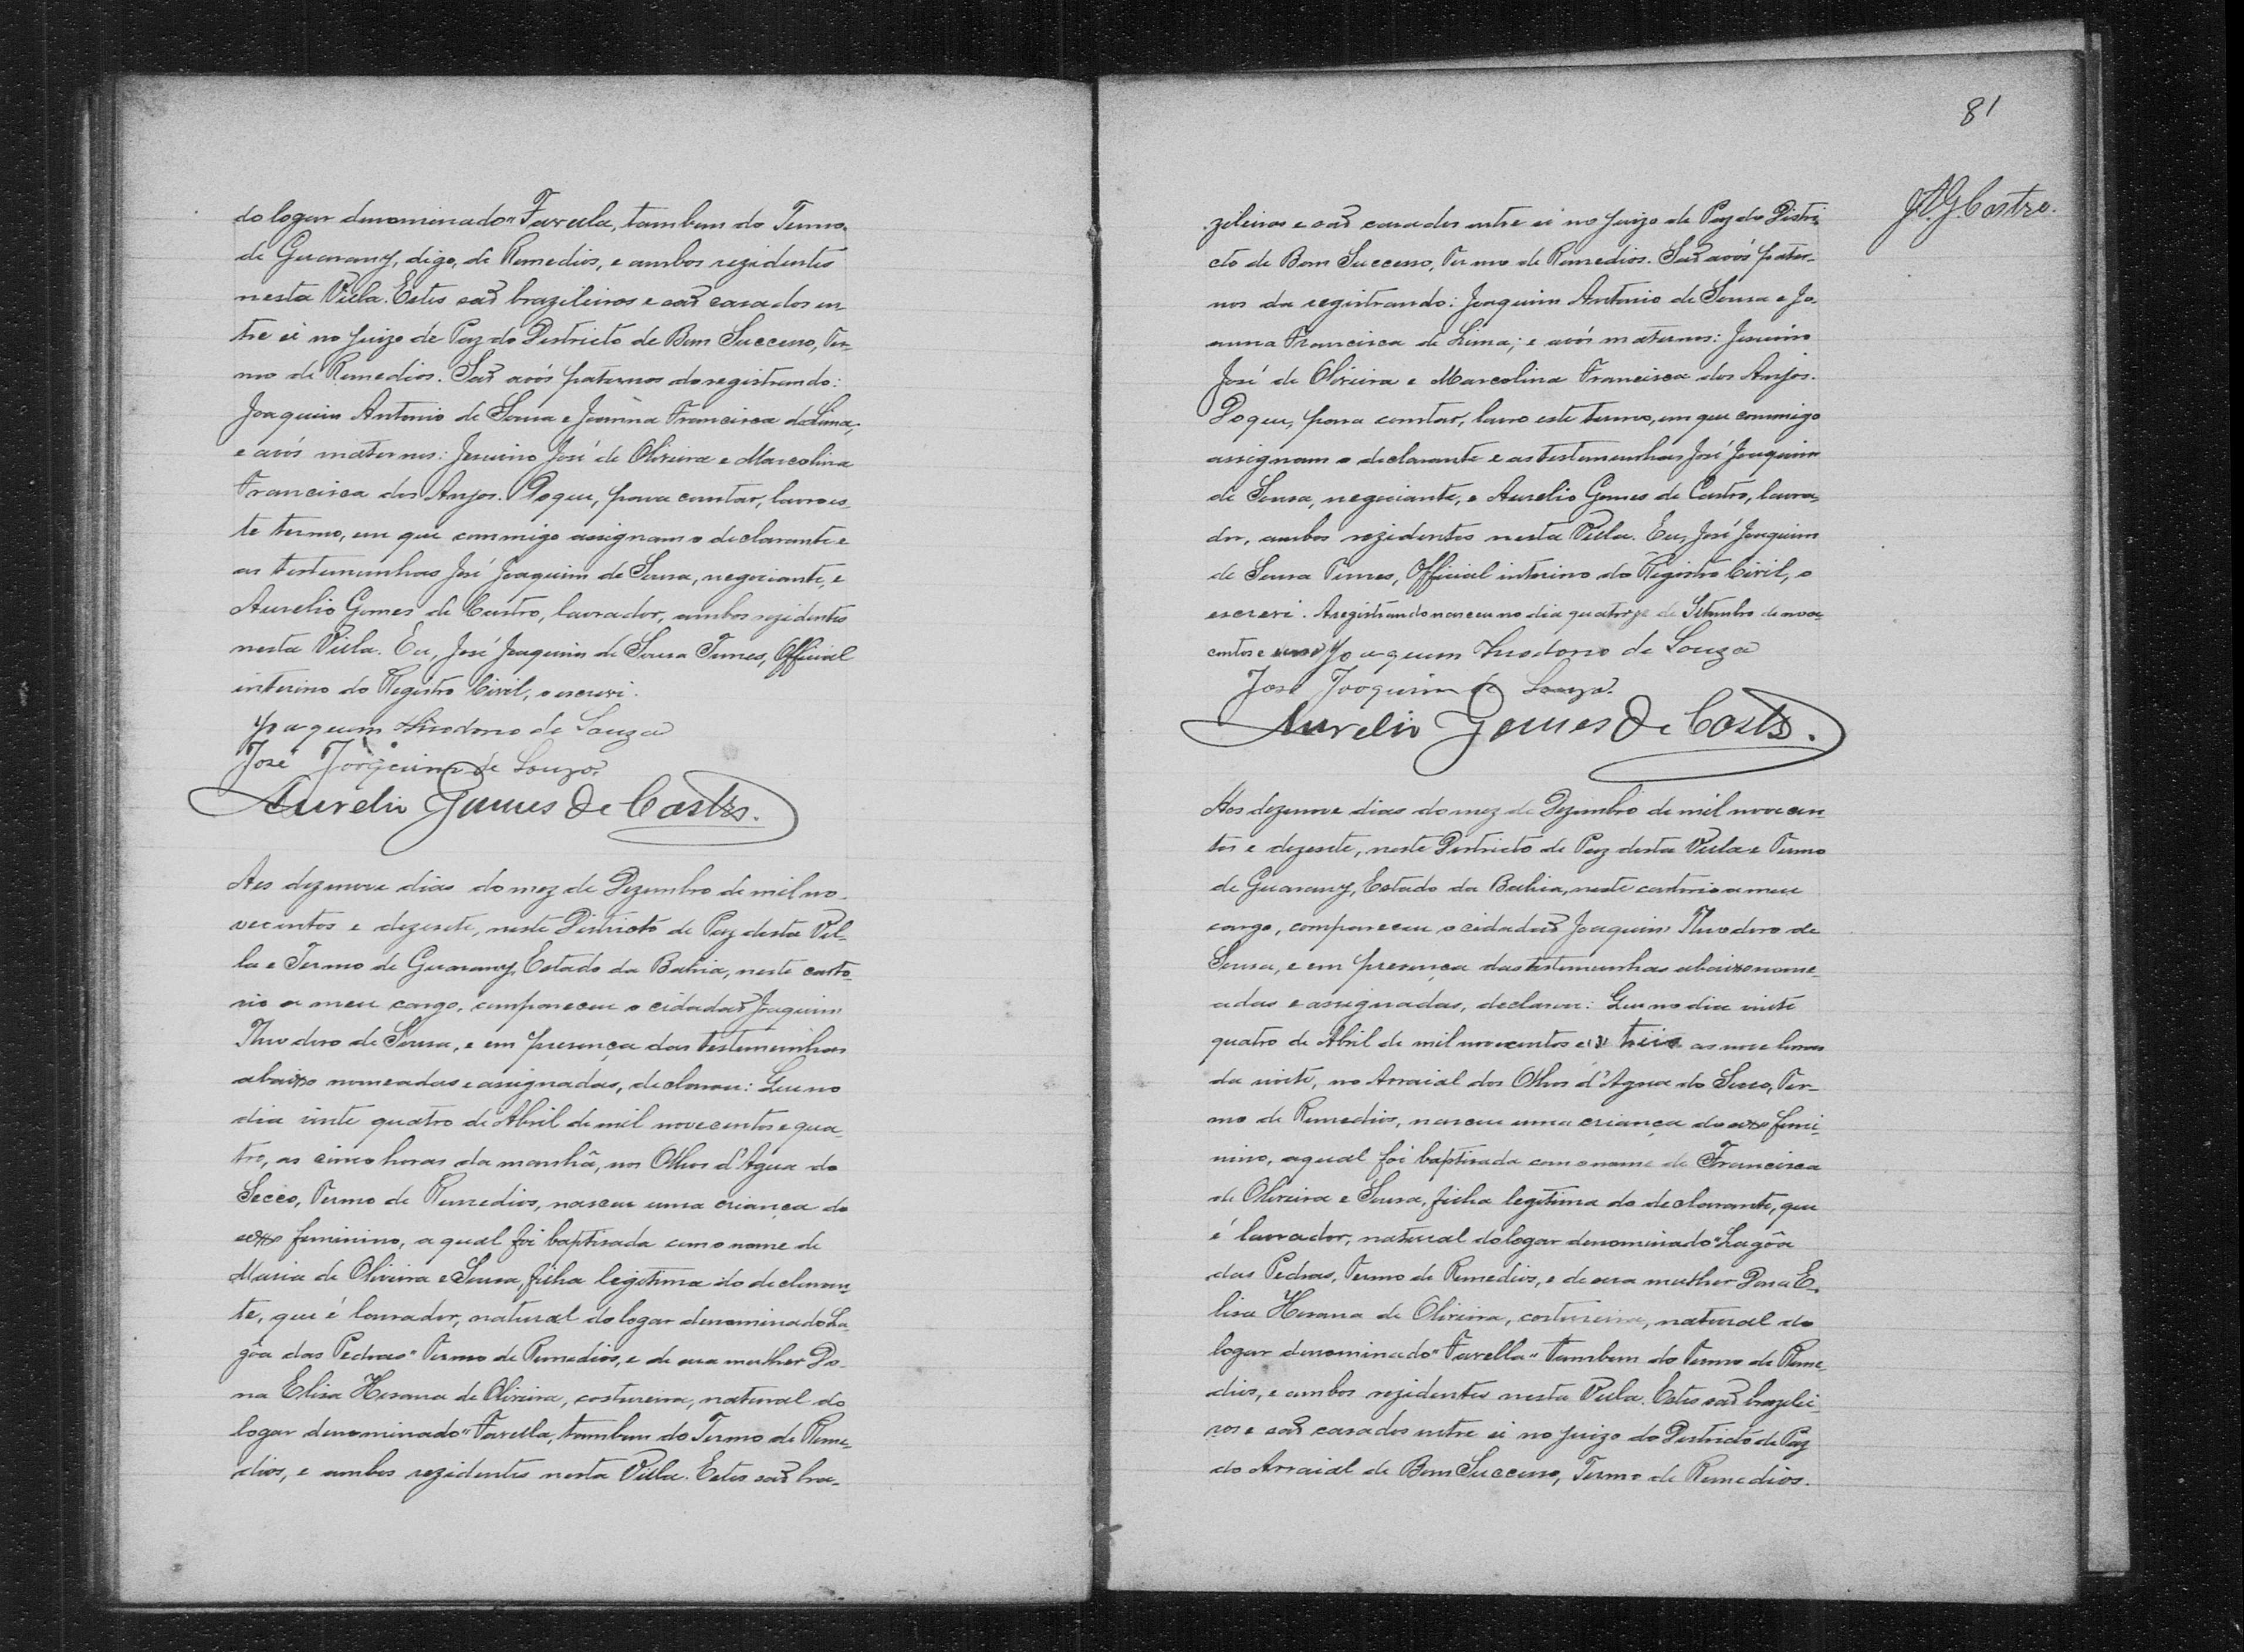 do logar denominado "Favella, tambem do Termo
de Guarany, digo, de Remedios, e ambos rezidentes
nesta Villa. Estes saõ brazileiros e saõ casados en
tre si no Juizo de Paz do Districto de Bom Successo, Ter-
mo de Remedios. Saõ avós paternos do registrando:
Joaquim Antonio de Sousa e Joanna Francisca de Lima;
e avós maternos: Jesuino José de Oliveira e Marcolina
Francisca dos Anjos. Do que, para constar, lavro es-
te termo, em que commigo assignam o declarante e
as testemunhas José Joaquim de Sousa, negociante, e
Aurelio Gomes de Castro, lavrador, ambos rezidentes
nesta Villa. Eu, José Joaquim de Sousa Tunes, Official
interino do Registro Civil, o escrevi.
Joaquim Theodoro de Souza
José Joaquim de Souza.
Aurelio Gomes de Castro.
Aos dezenove dias do mez de Dezembro de mil no-
vecentos e dezesete, neste Districto de Paz desta Vil-
la e Termo de Guarany, Estado da Bahia, neste carto-
rio a meu cargo, compareceu o cidadaõ Joaquim
Theodoro de Sousa, e em presença das testemunhas
abaixo nomeadas e assignadas, declarou: Que no
dia vinte quatro de Abril de mil novecentos e qua-
tro, as cinco horas da manhã, nos Olhos d'Agua do
Secco, Termo de Remedios, nasceu uma criança do
sexo feminino, a qual foi baptisada com o nome de
Maria de Oliveira e Sousa, filha legitima do declaran-
te, que é lavrador, natural do logar denominado La-
gôa das Pedras" Termo de Remedios, e de sua mulher Do-
na Elisa Hosana de Oliveira, costureira, natural do
logar denominado "Favella, tambem do Termo de Reme-
dios, e ambos rezidentes nesta Villa. Estes saõ bra-
81
J.A.G. Castro.
zileiros e saõ casados entre si no Juizo de Paz do Distri-
cto de Bom Successo, Termo de Remedios. Saõ avós pater-
nos da registrando: Joaquim Antonio de Sousa e Jo-
anna Francisca de Lima; e avós maternos: Jesuino
José de Oliveira e Marcolina Francisca dos Anjos.
Do que, para constar, lavro este termo, em que commigo
assignam o declarante e as testemunhas José Joaquim
de Sousa, negociante, e Aurelio Gomes de Castro, lavra-
dor, ambos rezidentes nesta Villa. Eu, José Joaquim
de Sousa Tunes, Official interino do Registro Civil, o
escrevi. A registrando nasceu no dia quatorze de Setembro de nove-
centos e um Joaquim Theodoro de Souza
José Joaquim de Souza.
Aurelio Gomes de Castro.
Aos dezenove dias do mez de Dezembro de mil novecen
tos e dezesete, neste Districto de Paz desta Villa e Termo
de Guarany, Estado da Bahia, neste cartorio a meu
cargo, compareceu o cidadaõ Joaquim Theodoro de
Sousa, e em presença das testemunhas abaixo nome-
adas e assignadas, declarou: Que no dia vinte
quatro de Abril de mil novecentos e tres as nove horas
da noite, no Arraial dos Olhos d'Agua do Secco, Ter-
mo de Remedios, nasceu uma criança do sexo femi-
nino, a qual foi baptisada com o nome de Francisca
de Oliveira e Sousa, filha legitima do declarante, que
é lavrador, natural do logar denominado "Lagôa
das Pedras, Termo de Remedios, e de sua mulher Dona E-
lisa Hosana de Oliveira, costureira, natural do
logar denominado "Favella" tambem do Termo de Reme-
dios, e ambos rezidentes nesta Villa. Estes saõ brazilei
ros e saõ casados entre si no Juizo do Districto de Paz
do Arraial de Bom Successo, Termo de Remedios.